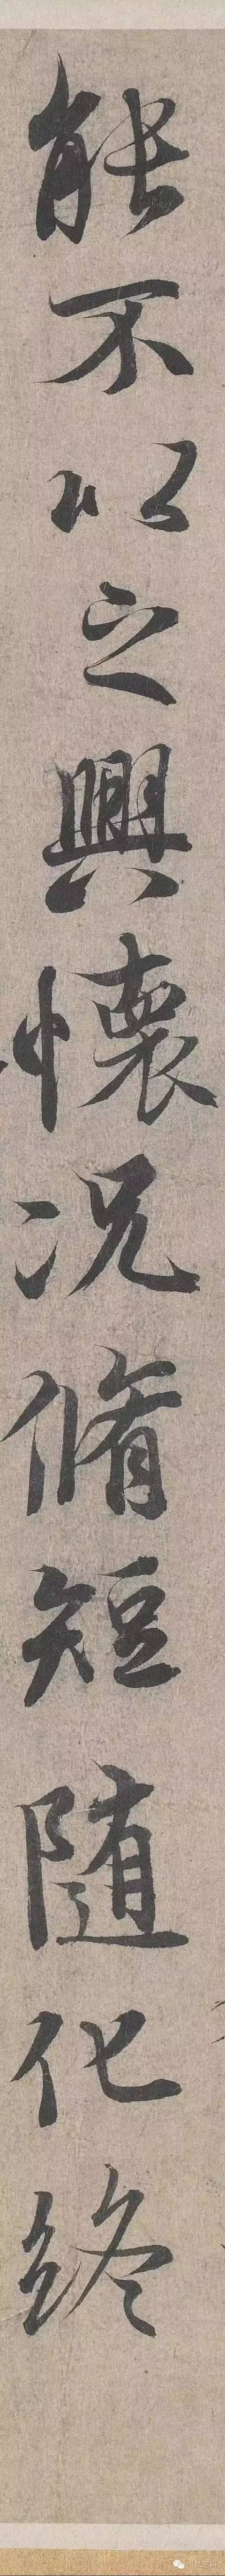 能不以之興懷况脩短随化終